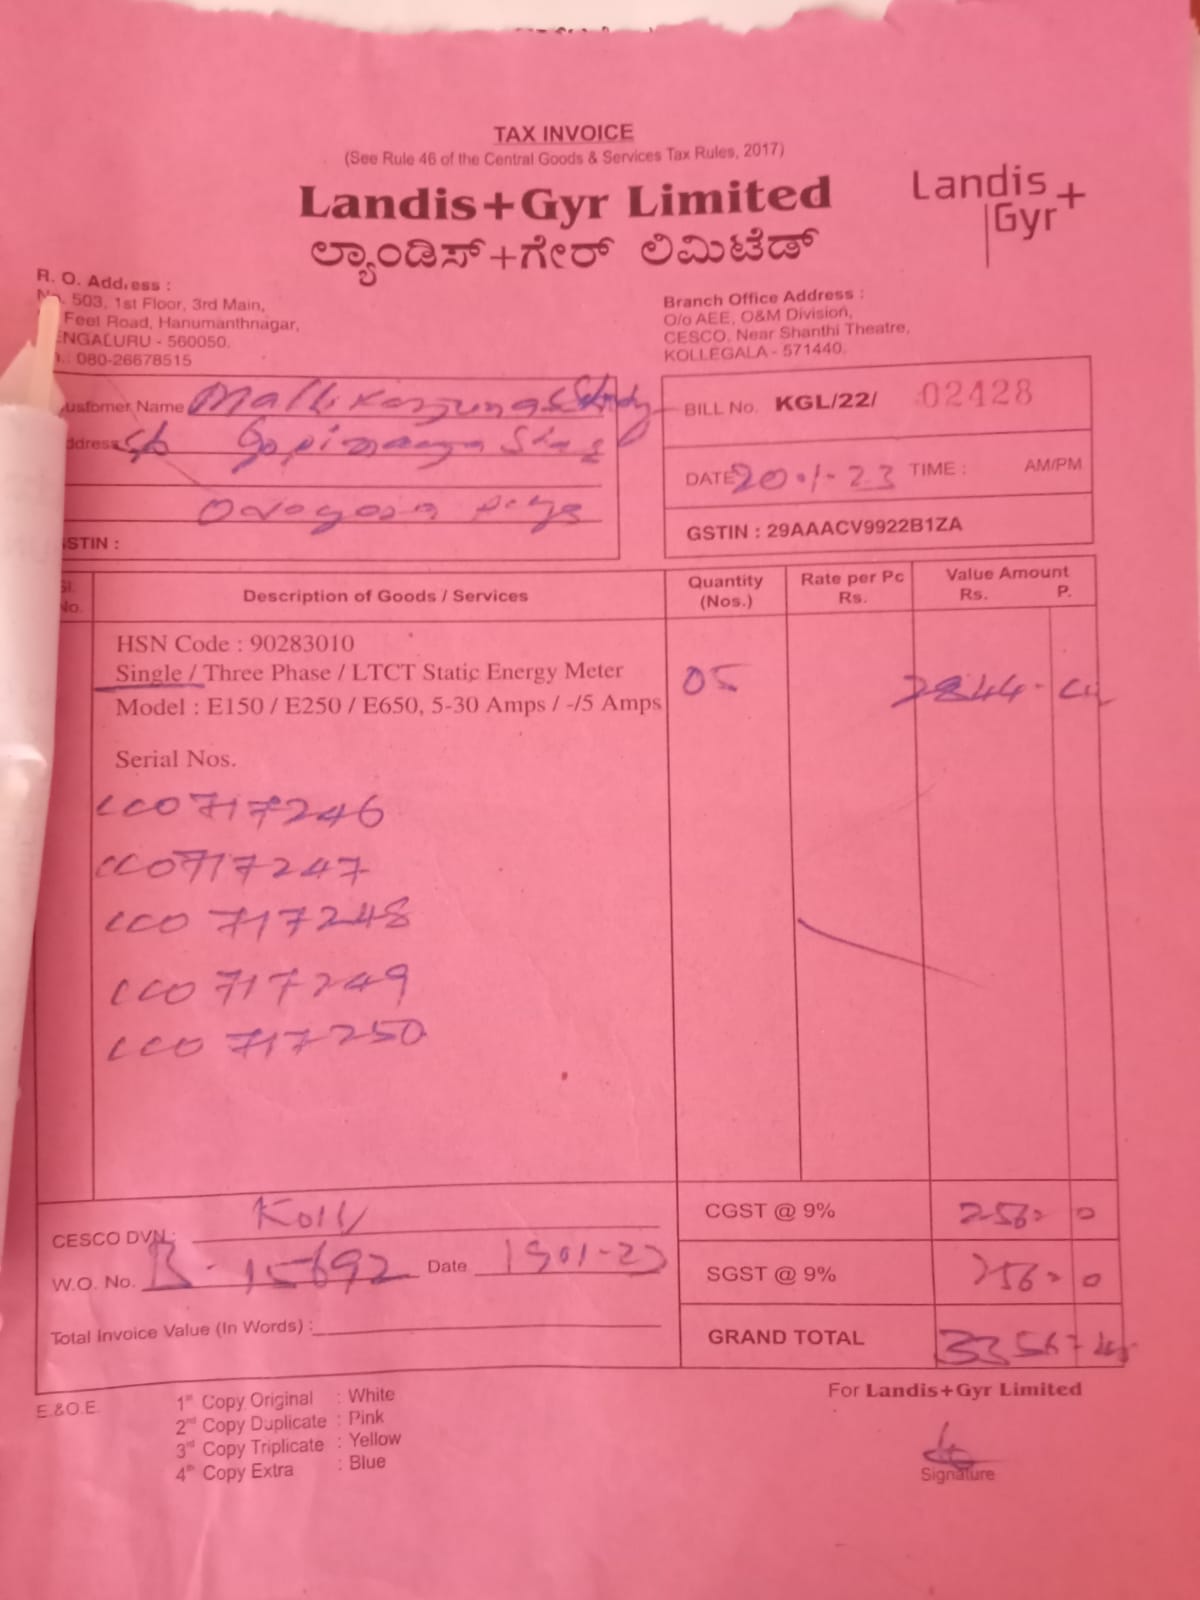 TAX INVOICE
(See Rule 46 of the Central Goods & Services Tax Rules, 2017)
Landis+Gyr Limited
ಲ್ಯಾಂಡಿಸ್+ಗೇರ್ ಲಿಮಿಟೆಡ್
Landis
Gyr+
R. O. Address :
No. 503, 1st Floor, 3rd Main,
Feet Road, Hanumanthnagar,
ENGALURU - 560050.
: 080-26678515
Branch Office Address :
O/o AEE, O&M Division,
CESCO, Near Shanthi Theatre,
KOLLEGALA - 571440.
ustomer Name
ddress
STIN :
BILL No. KGL/22/ 02428
DATE 20-1-23 TIME : AM/PM
GSTIN : 29AAACV9922B1ZA
Sl. No.
Description of Goods / Services
Quantity (Nos.)
Rate per Pc Rs.
Value Amount Rs. P.
HSN Code : 90283010
Single / Three Phase / LTCT Static Energy Meter 05
Model : E150 / E250 / E650, 5-30 Amps / -/5 Amps
Serial Nos.
LCO 717246
LCO 717247
LCO 717248
LCO 717249
LCO 717250
CESCO DVN.:
W.O. No. 15692 Date
Total Invoice Value (In Words) :
CGST @ 9% 256
SGST @ 9% 256
GRAND TOTAL
E.&O.E.
1st Copy Original : White
2nd Copy Duplicate : Pink
3rd Copy Triplicate : Yellow
4th Copy Extra : Blue
For Landis+Gyr Limited
Signature